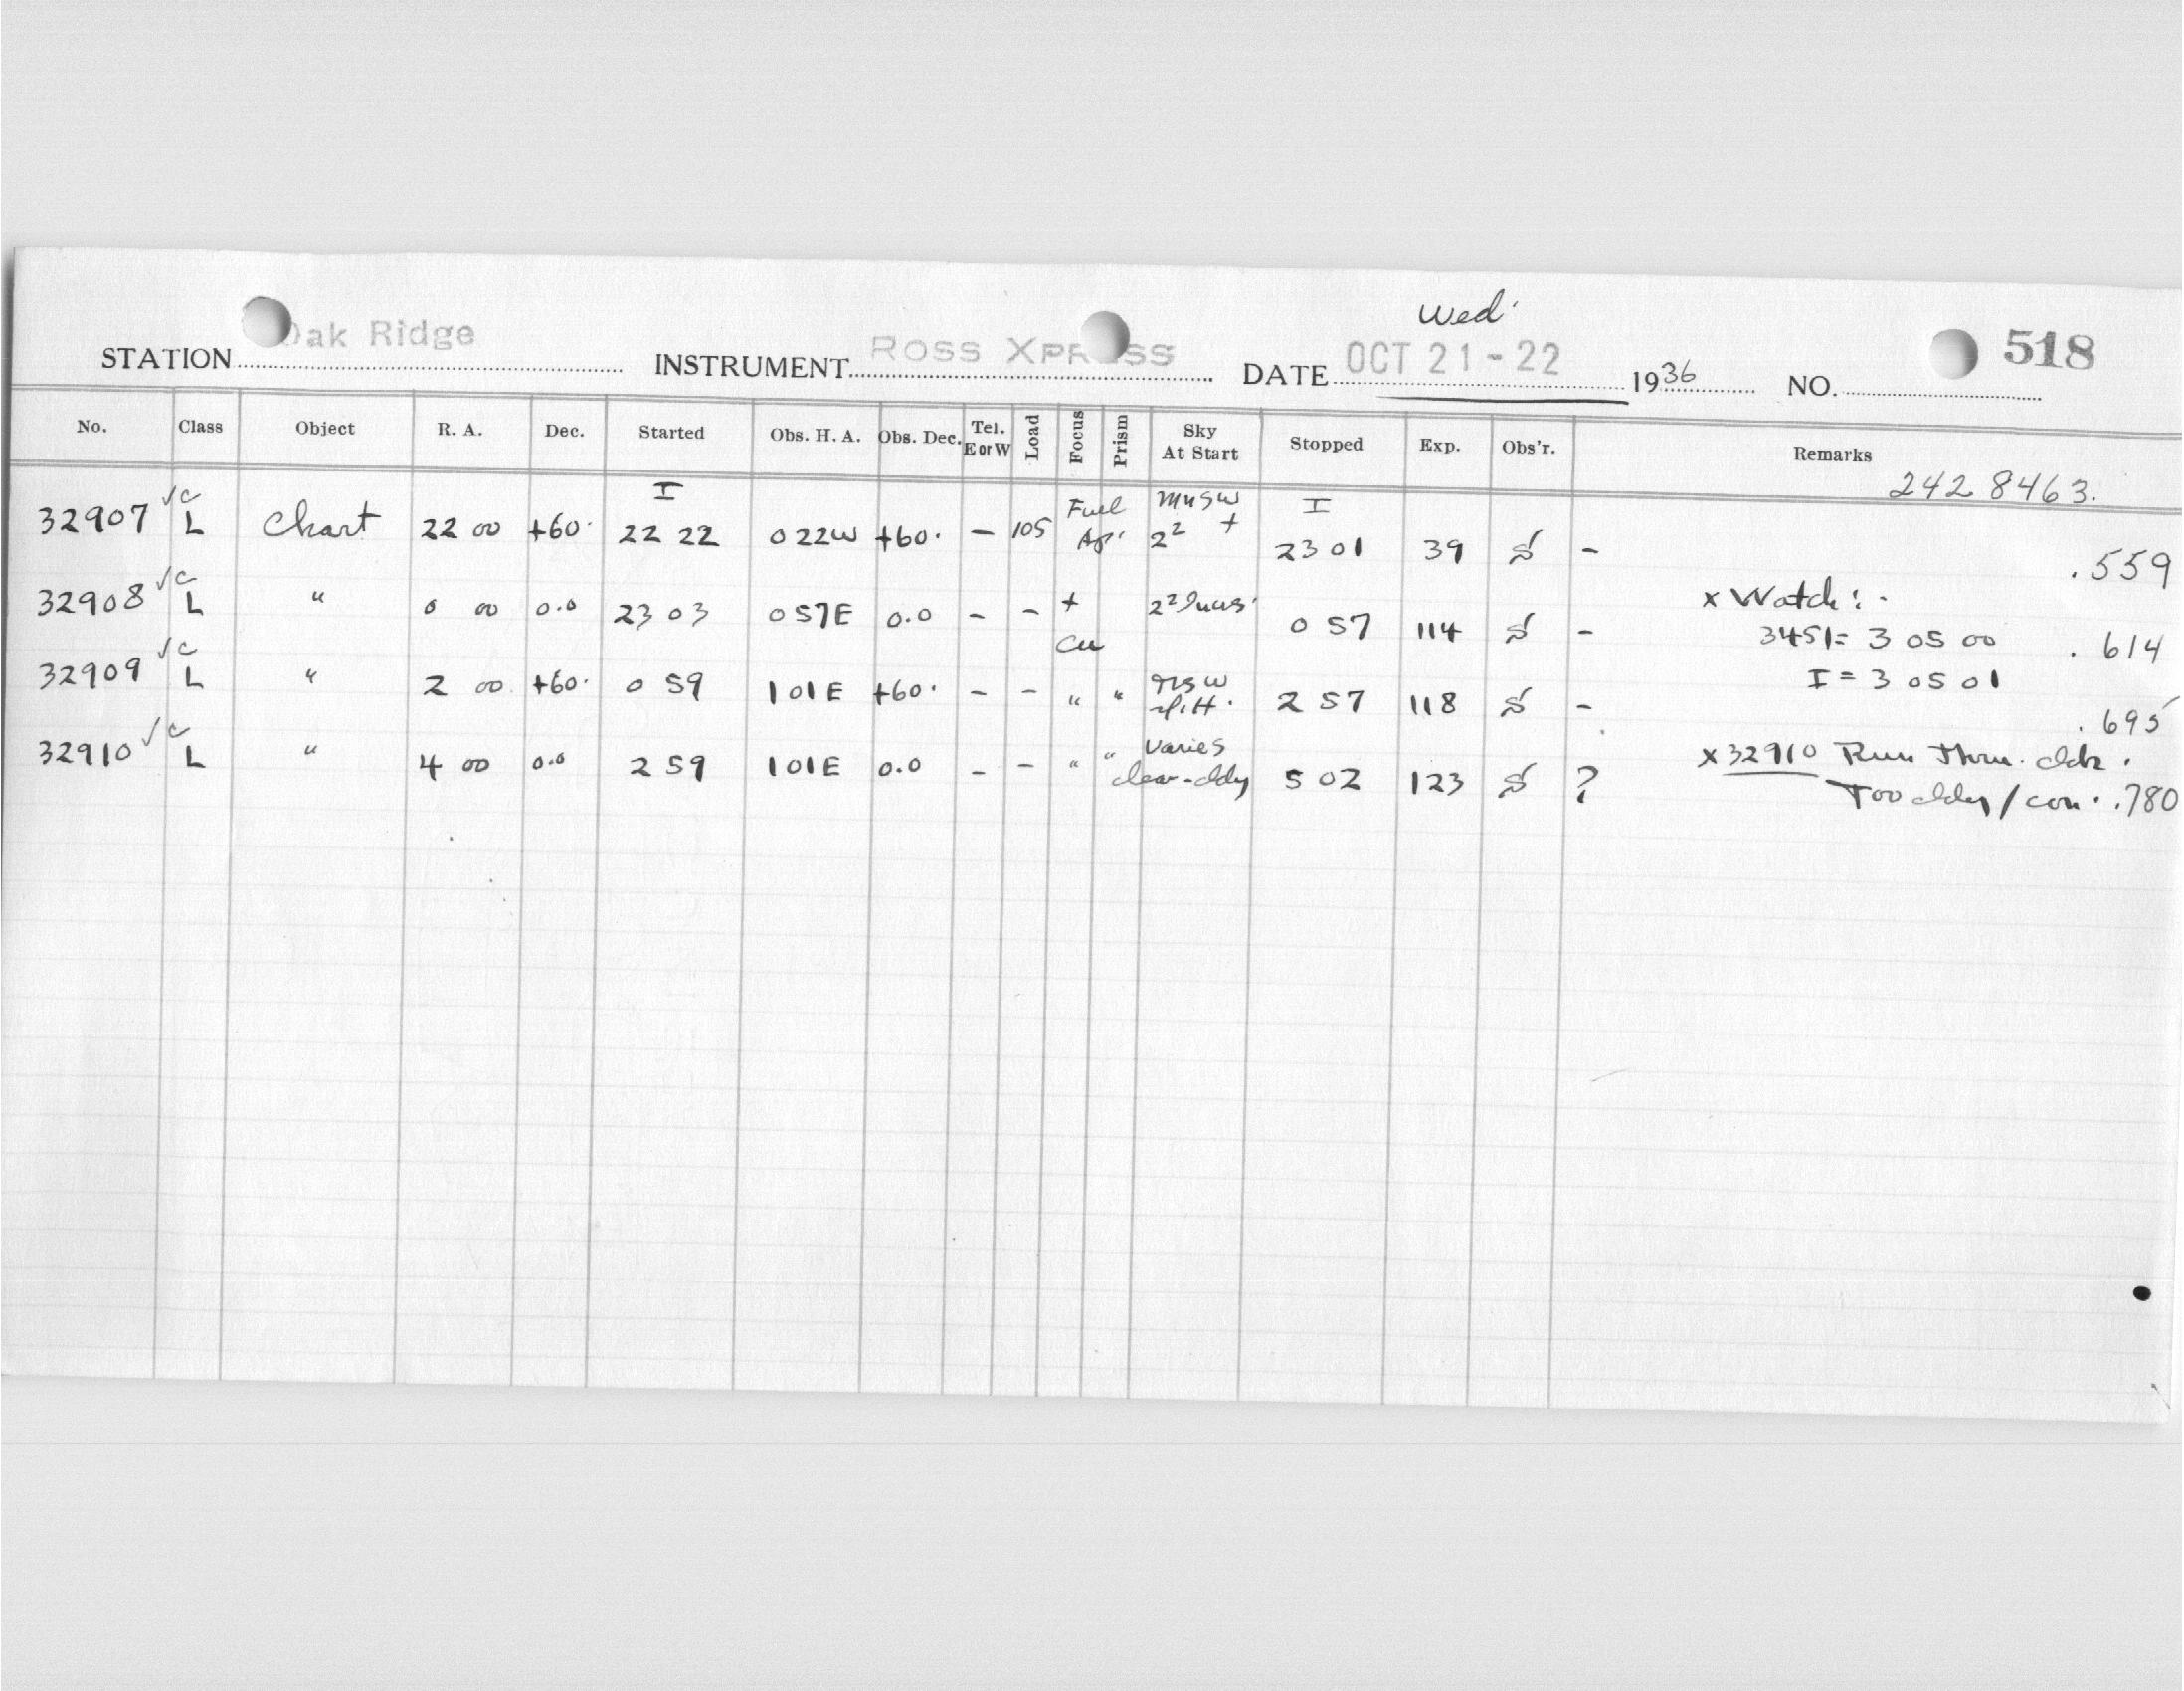 Wed.
STATION Oak Ridge INSTRUMENT ROSS XPRESS DATE OCT 21-22 1936 NO. 518
No. Class Object R. A. Dec. Started Obs. H. A. Obs. Dec. Tel. E or W Load Focus Prism Sky At Start Stopped Exp. Obs'r. Remarks
242 8463.
32907 √c L Chart 22 00 +60. I 22 22 0 22W +60. – 105 Full Ap. 2² + I 23 01 39 – .559
32908 √c L " 0 00 0.0 23 03 0 57E 0.0 – – + 2² 0 57 114 – x Watch:-
3451= 3 05 00 .614
Cu
I = 3 05 01
32909 √c L " 2 00 +60. 0 59 1 01E +60. – – " " 2 57 118 – .695
32910 √c L " 4 00 0.0 2 59 1 01E 0.0 – – " " Varies clear-cldy 5 02 123 ? x 32910 Run thru. clds.
Too cldy / con. .780